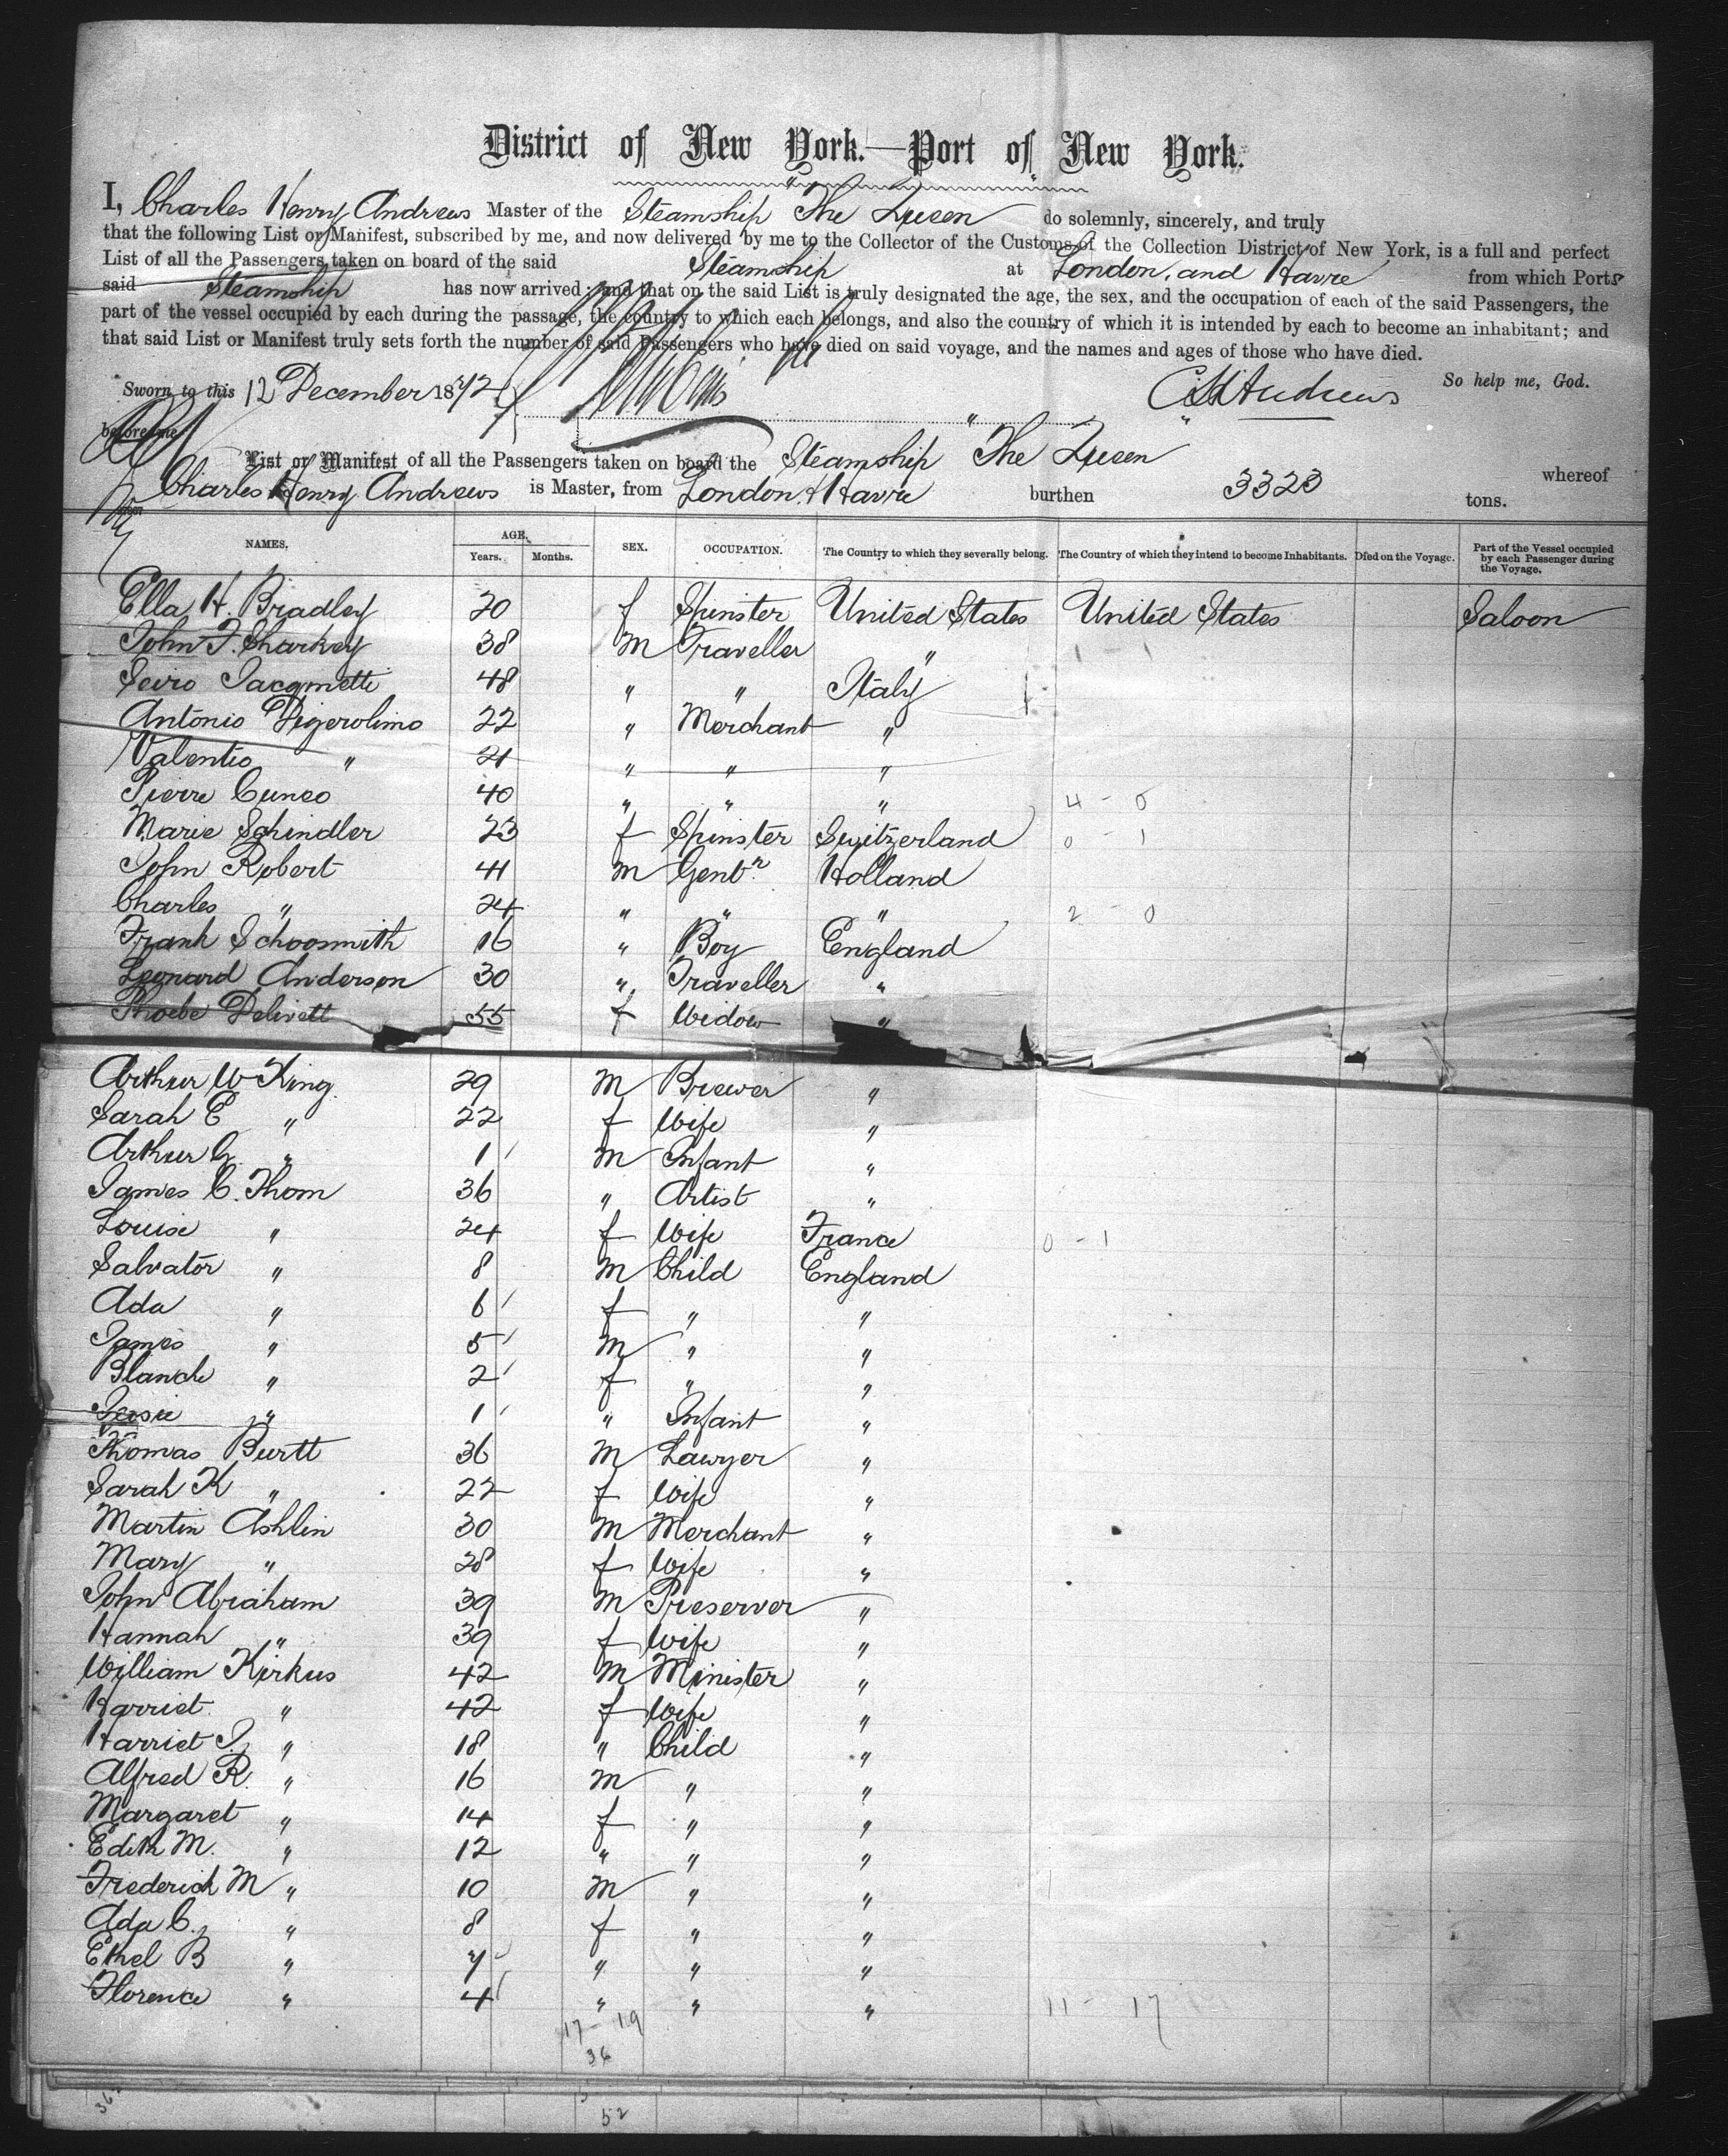 District of New York.—Port of New York.
I, Charles Henry Andrews Master of the Steamship The Queen do solemnly, sincerely, and truly
that the following List or Manifest, subscribed by me, and now delivered by me to the Collector of the Customs of the Collection District of New York, is a full and perfect
List of all the Passengers taken on board of the said Steamship at London, and Havre from which Ports
said Steamship has now arrived; and that on the said List is truly designated the age, the sex, and the occupation of each of the said Passengers, the
part of the vessel occupied by each during the passage, the country to which each belongs, and also the country of which it is intended by each to become an inhabitant; and
that said List or Manifest truly sets forth the number of said Passengers who have died on said voyage, and the names and ages of those who have died.
So help me, God.
Sworn to this 12 December 1872 CHAndrews
before me
List or Manifest of all the Passengers taken on board the Steamship The Queen whereof
Charles Henry Andrews is Master, from London & Havre burthen 3323 tons.
NAMES. AGE. Years. Months. SEX. OCCUPATION. The Country to which they severally belong. The Country of which they intend to become Inhabitants. Died on the Voyage. Part of the Vessel occupied by each Passenger during the Voyage.
Ella H. Bradley 20 f Spinster United States United States Saloon
John F. Sharkey 38 M Traveller " 1 - 1
48 " " Italy
Antonio Digerolimo 22 " Merchant "
Valentio " 21 " " "
Pierre Cuneo 40 " " " 4 - 0
Marie Schindler 23 f Spinster Switzerland 0 1
John Robert 41 M Gentn Holland
Charles " 24 " " " 2 - 0
Frank Schoosmith 16 " Boy England
Leonard Anderson 30 " Traveller "
Phoebe Delivett 55 f Widow "
Arthur W King 29 M Brewer "
Sarah E " 22 f Wife "
Arthur G. " 1 M Infant "
James C. Thom 36 " Artist "
Louise " 24 f Wife France 0 - 1
Salvator " 8 M Child England
Ada " 6 f " "
James " 5 M " "
Blanche " 2 f " "
Jessie " 1 " Infant "
Thomas Burtt 36 M Lawyer "
Sarah K " 22 f Wife "
Martin Ashlin 30 M Merchant "
Mary " 28 f Wife "
John Abraham 39 M Preserver "
Hannah " 39 f Wife "
William Kirkus 42 M Minister "
Harriet " 42 f Wife "
Harriet J. " 18 " Child "
Alfred R. " 16 M " "
Margaret " 14 f " "
Edith M. " 12 " " "
Frederick M " 10 M " "
Ada C. " 8 f " "
Ethel B " 7 " " "
Florence " 4 " " " 11 - 17
17 - 19
36
52